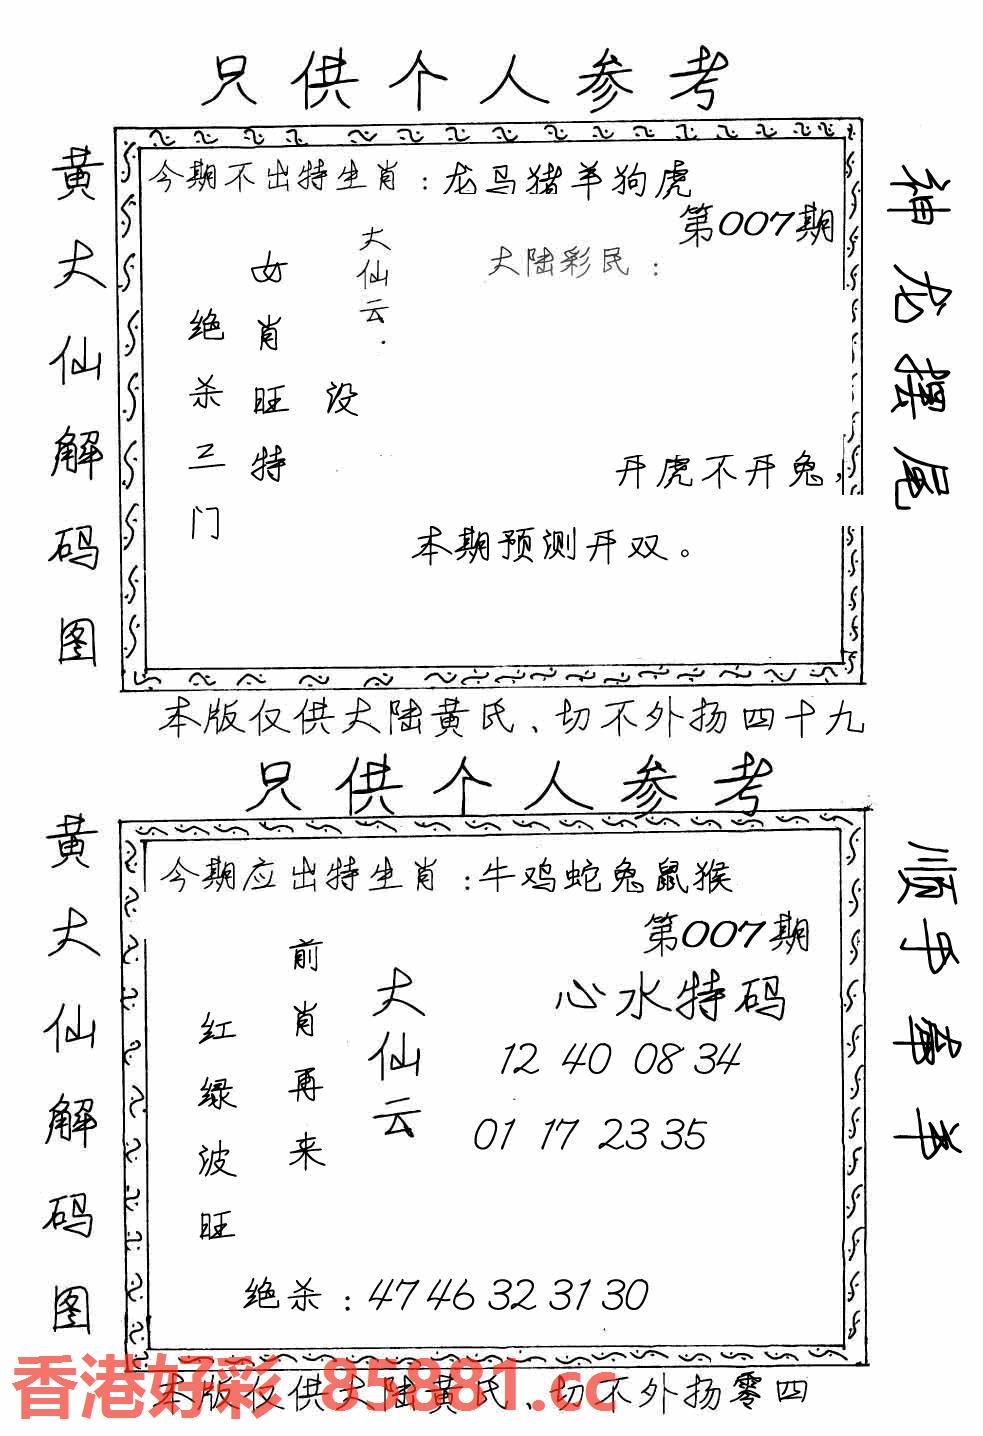 只供个人参考
黄大仙解码图
今期不出特生肖：龙马猪羊狗虎
第007期
大陆彩民：
大仙云.
女肖旺特
绝杀三门
设
开虎不开兔，
本期预测开双。
神龙摆尾
本版仅供大陆黄氏、切不外扬四十九
只供个人参考
黄大仙解码图
今期应出特生肖：牛鸡蛇兔鼠猴
第007期
心水特码
12 40 08 34
01 17 23 35
大仙云
前肖再来
红绿波旺
绝杀：47 46 32 31 30
顺手牵羊
本版仅供大陆黄氏、切不外扬零四
香港好彩 85881.cc